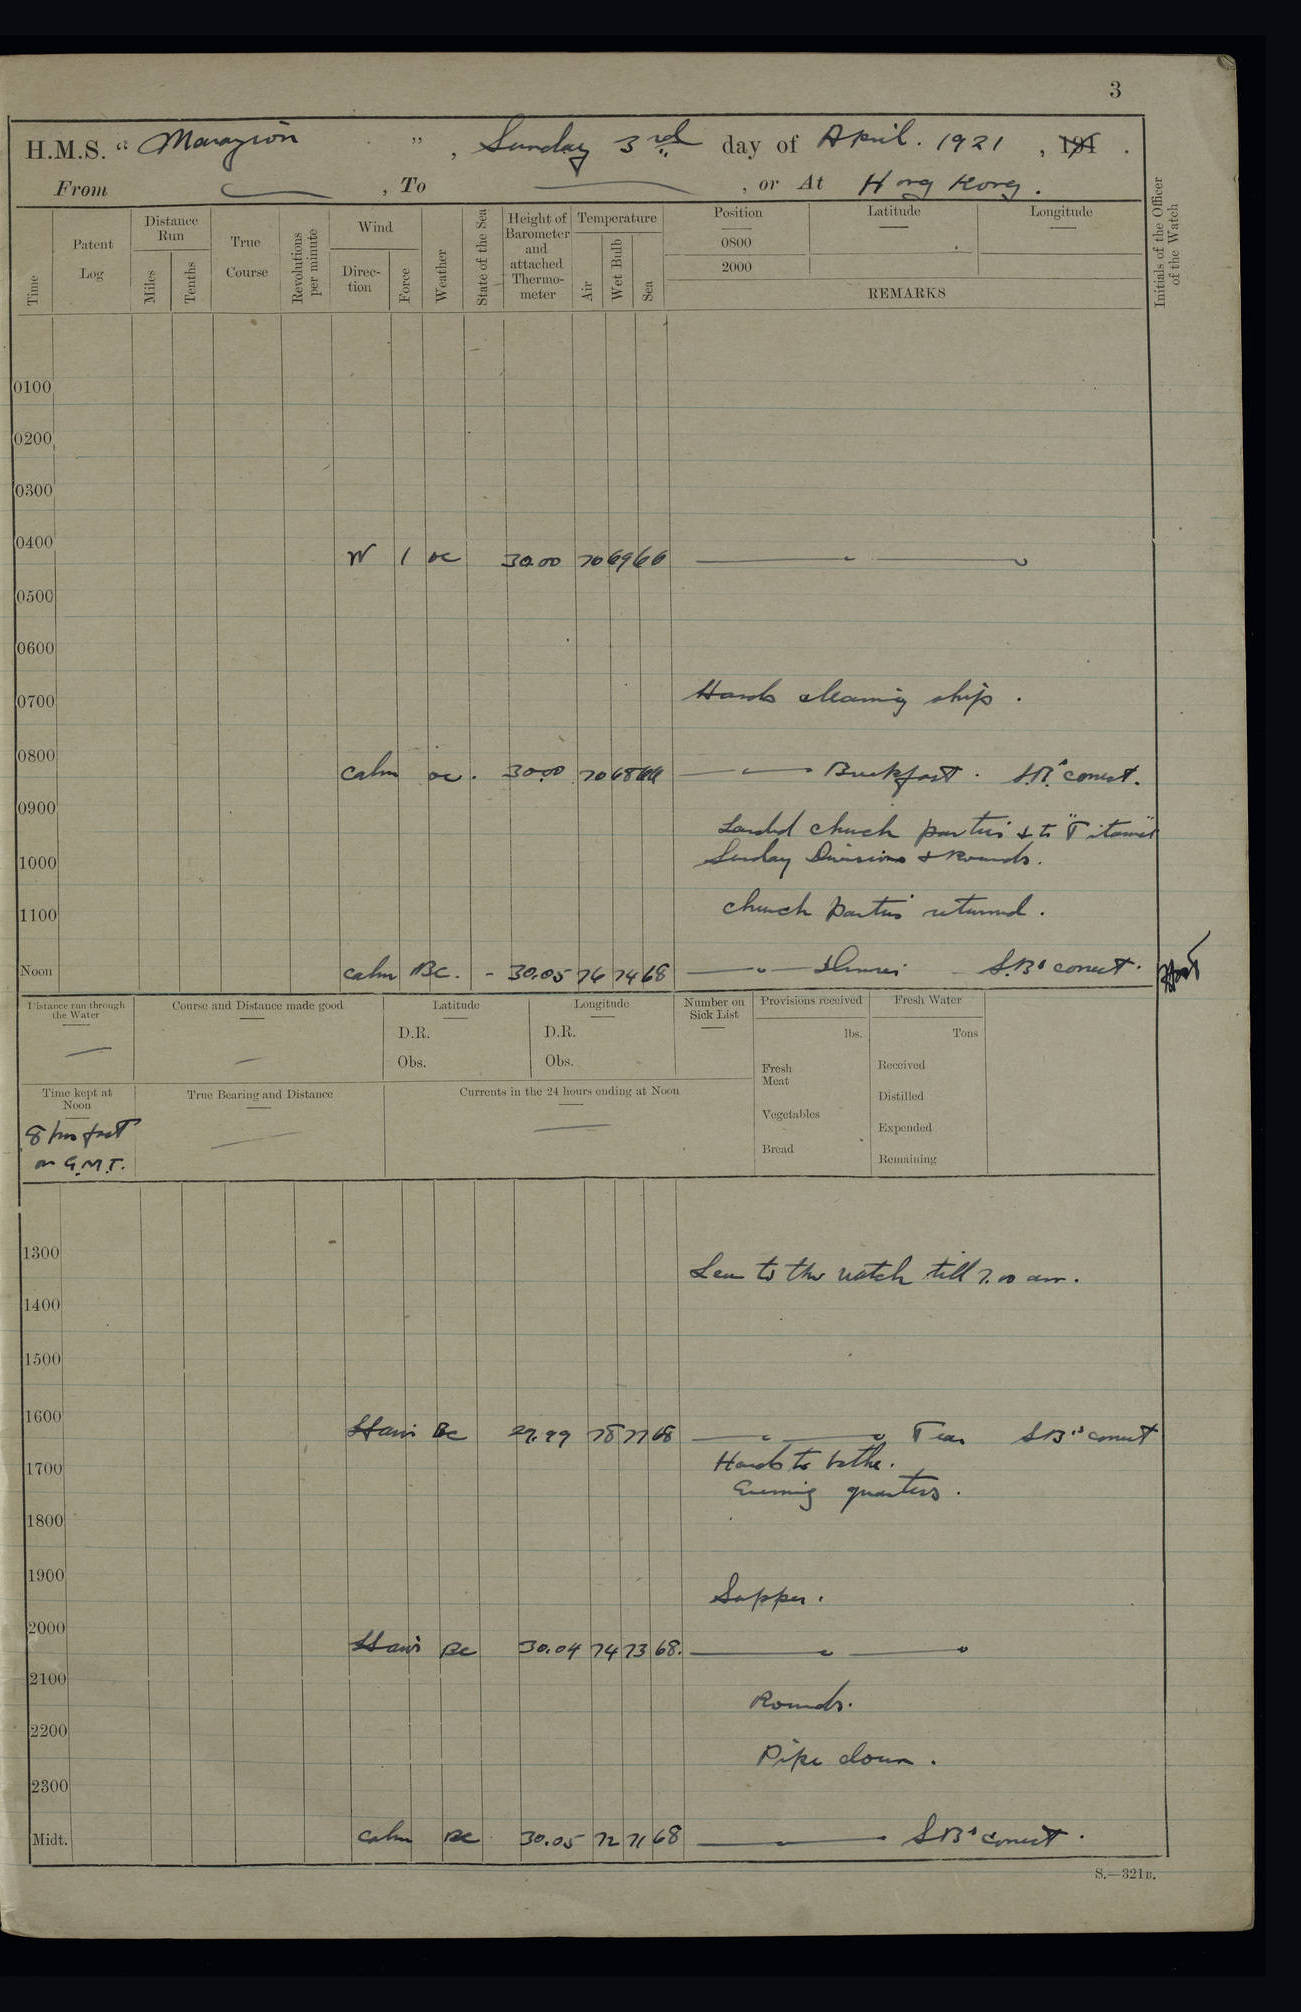 3
H.M.S. “ Marazion ” , Sunday 3rd day of April. 1921 , 191 .
From , To , or At Hong Kong.
Time
Patent Log
Distance Run
Miles
Tenths
True Course
Revolutions per minute
Wind
Direc-tion
Force
Weather
State of the Sea
Height of Barometer and attached Thermo-meter
Temperature
Air
Wet Bulb
Sea
Position
Latitude
Longitude
0800
2000
REMARKS
Initials of the Officer of the Watch
0100
0200
0300
0400 W 1 oc 30.00 70 69 66
0500
0600
0700 Hands cleaning ship .
0800 calm oc . 30.00 70 68 66 Breakfast . S.Bs correct.
0900 Landed church parties & to "Titania"
1000 Sunday Divisions & Rounds.
1100 church parties returned .
Noon calm BC. - 30.05 76 74 68 Dinner S.Bs correct.
Distance run through the Water
Course and Distance made good
Latitude
D.R.
Obs.
Longitude
D.R.
Obs.
Number on Sick List
Provisions received
lbs.
Fresh Meat
Vegetables
Bread
Fresh Water
Tons
Received
Distilled
Expended
Remaining
Time kept at Noon
8 hrs fast
on G.M.T.
True Bearing and Distance
Currents in the 24 hours ending at Noon
1300 Leave to the watch till 7.00 am.
1400
1500
1600 BC 29.99 78 77 68 Tea S.Bs correct
1700 Hands to bathe.
Evening quarters .
1800
1900 Supper .
2000 BC 30.04 74 73 68.
2100 Rounds.
2200 Pipe down .
2300
Midt. calm BC 30.05 72 71 68 S.Bs correct .
S.—321B.